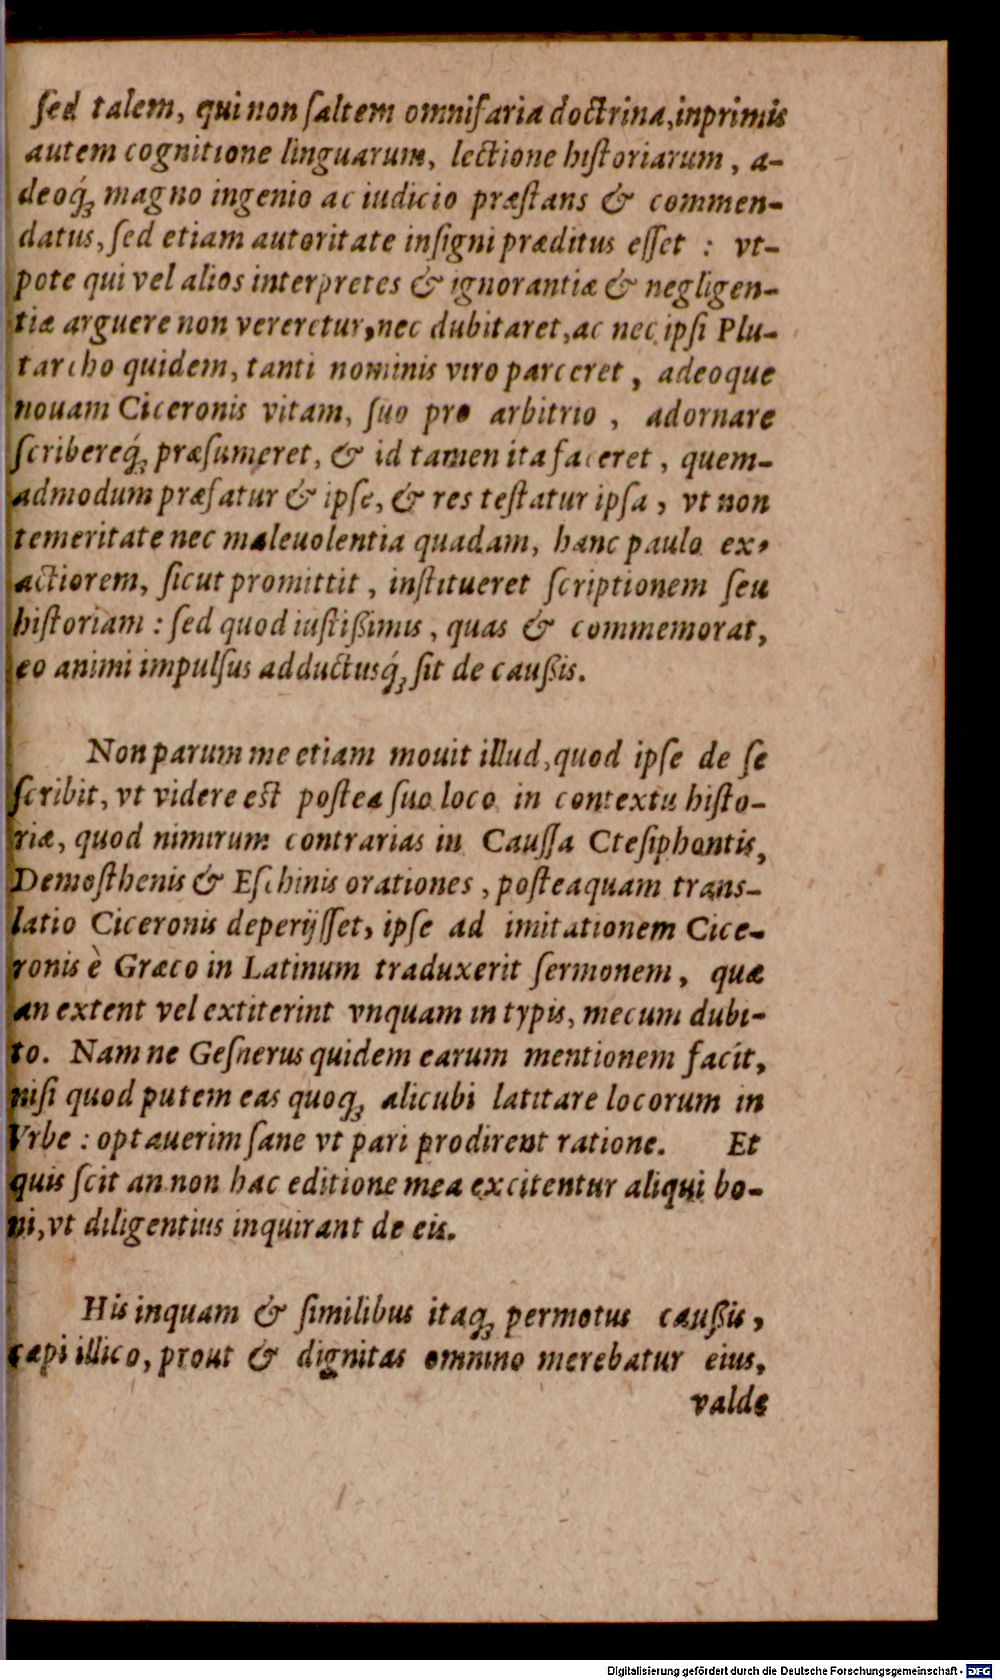 ſed talem, qui non ſaltem omnifaria doctrina, inprimis
autem cognitione linguarum, lectione hiſtoriarum, a-
deoq́ꝫ magno ingenio ac iudicio præſtans & commen-
datus, ſed etiam autoritate inſigni præditus eſſet : vt-
pote qui vel alios interpretes & ignorantiæ & negligen-
tiæ arguere non vereretur, nec dubitaret, ac nec ipſi Plu-
tarcho quidem, tanti nominis viro parceret, adeoque
nouam Ciceronis vitam, ſuo pro arbitrio, adornare
ſcribereq́ꝫ præſumeret, & id tamen ita faceret, quem-
admodum præfatur & ipſe, & res teſtatur ipſa, vt non
temeritate nec maleuolentia quadam, hanc paulo ex-
actiorem, ſicut promittit, inſtitueret ſcriptionem ſeu
hiſtoriam : ſed quod iuſtißimis, quas & commemorat,
eo animi impulſus adductusq́ꝫ ſit de caußis.
Non parum me etiam mouit illud, quod ipſe de ſe
ſcribit, vt videre est poſtea ſuo loco in contextu hiſto-
riæ, quod nimirum contrarias in Cauſſa Cteſiphontis,
Demoſthenis & Eſchinis orationes, poſteaquam trans-
latio Ciceronis deperijſſet, ipſe ad imitationem Cice-
ronis è Græco in Latinum traduxerit ſermonem, quæ
an extent vel extiterint vnquam in typis, mecum dubi-
to. Nam ne Geſnerus quidem earum mentionem facit,
niſi quod putem eas quoqꝫ alicubi latitare locorum in
Vrbe : optauerim ſane vt pari prodirent ratione. Et
quis ſcit an non hac editione mea excitentur aliqui bo-
ni, vt diligentius inquirant de eis.
His inquam & ſimilibus itaqꝫ permotus caußis,
cæpi illico, prout & dignitas omnino merebatur eius,
valde
Digitalisierung gefördert durch die Deutsche Forschungsgemeinschaft - DFG